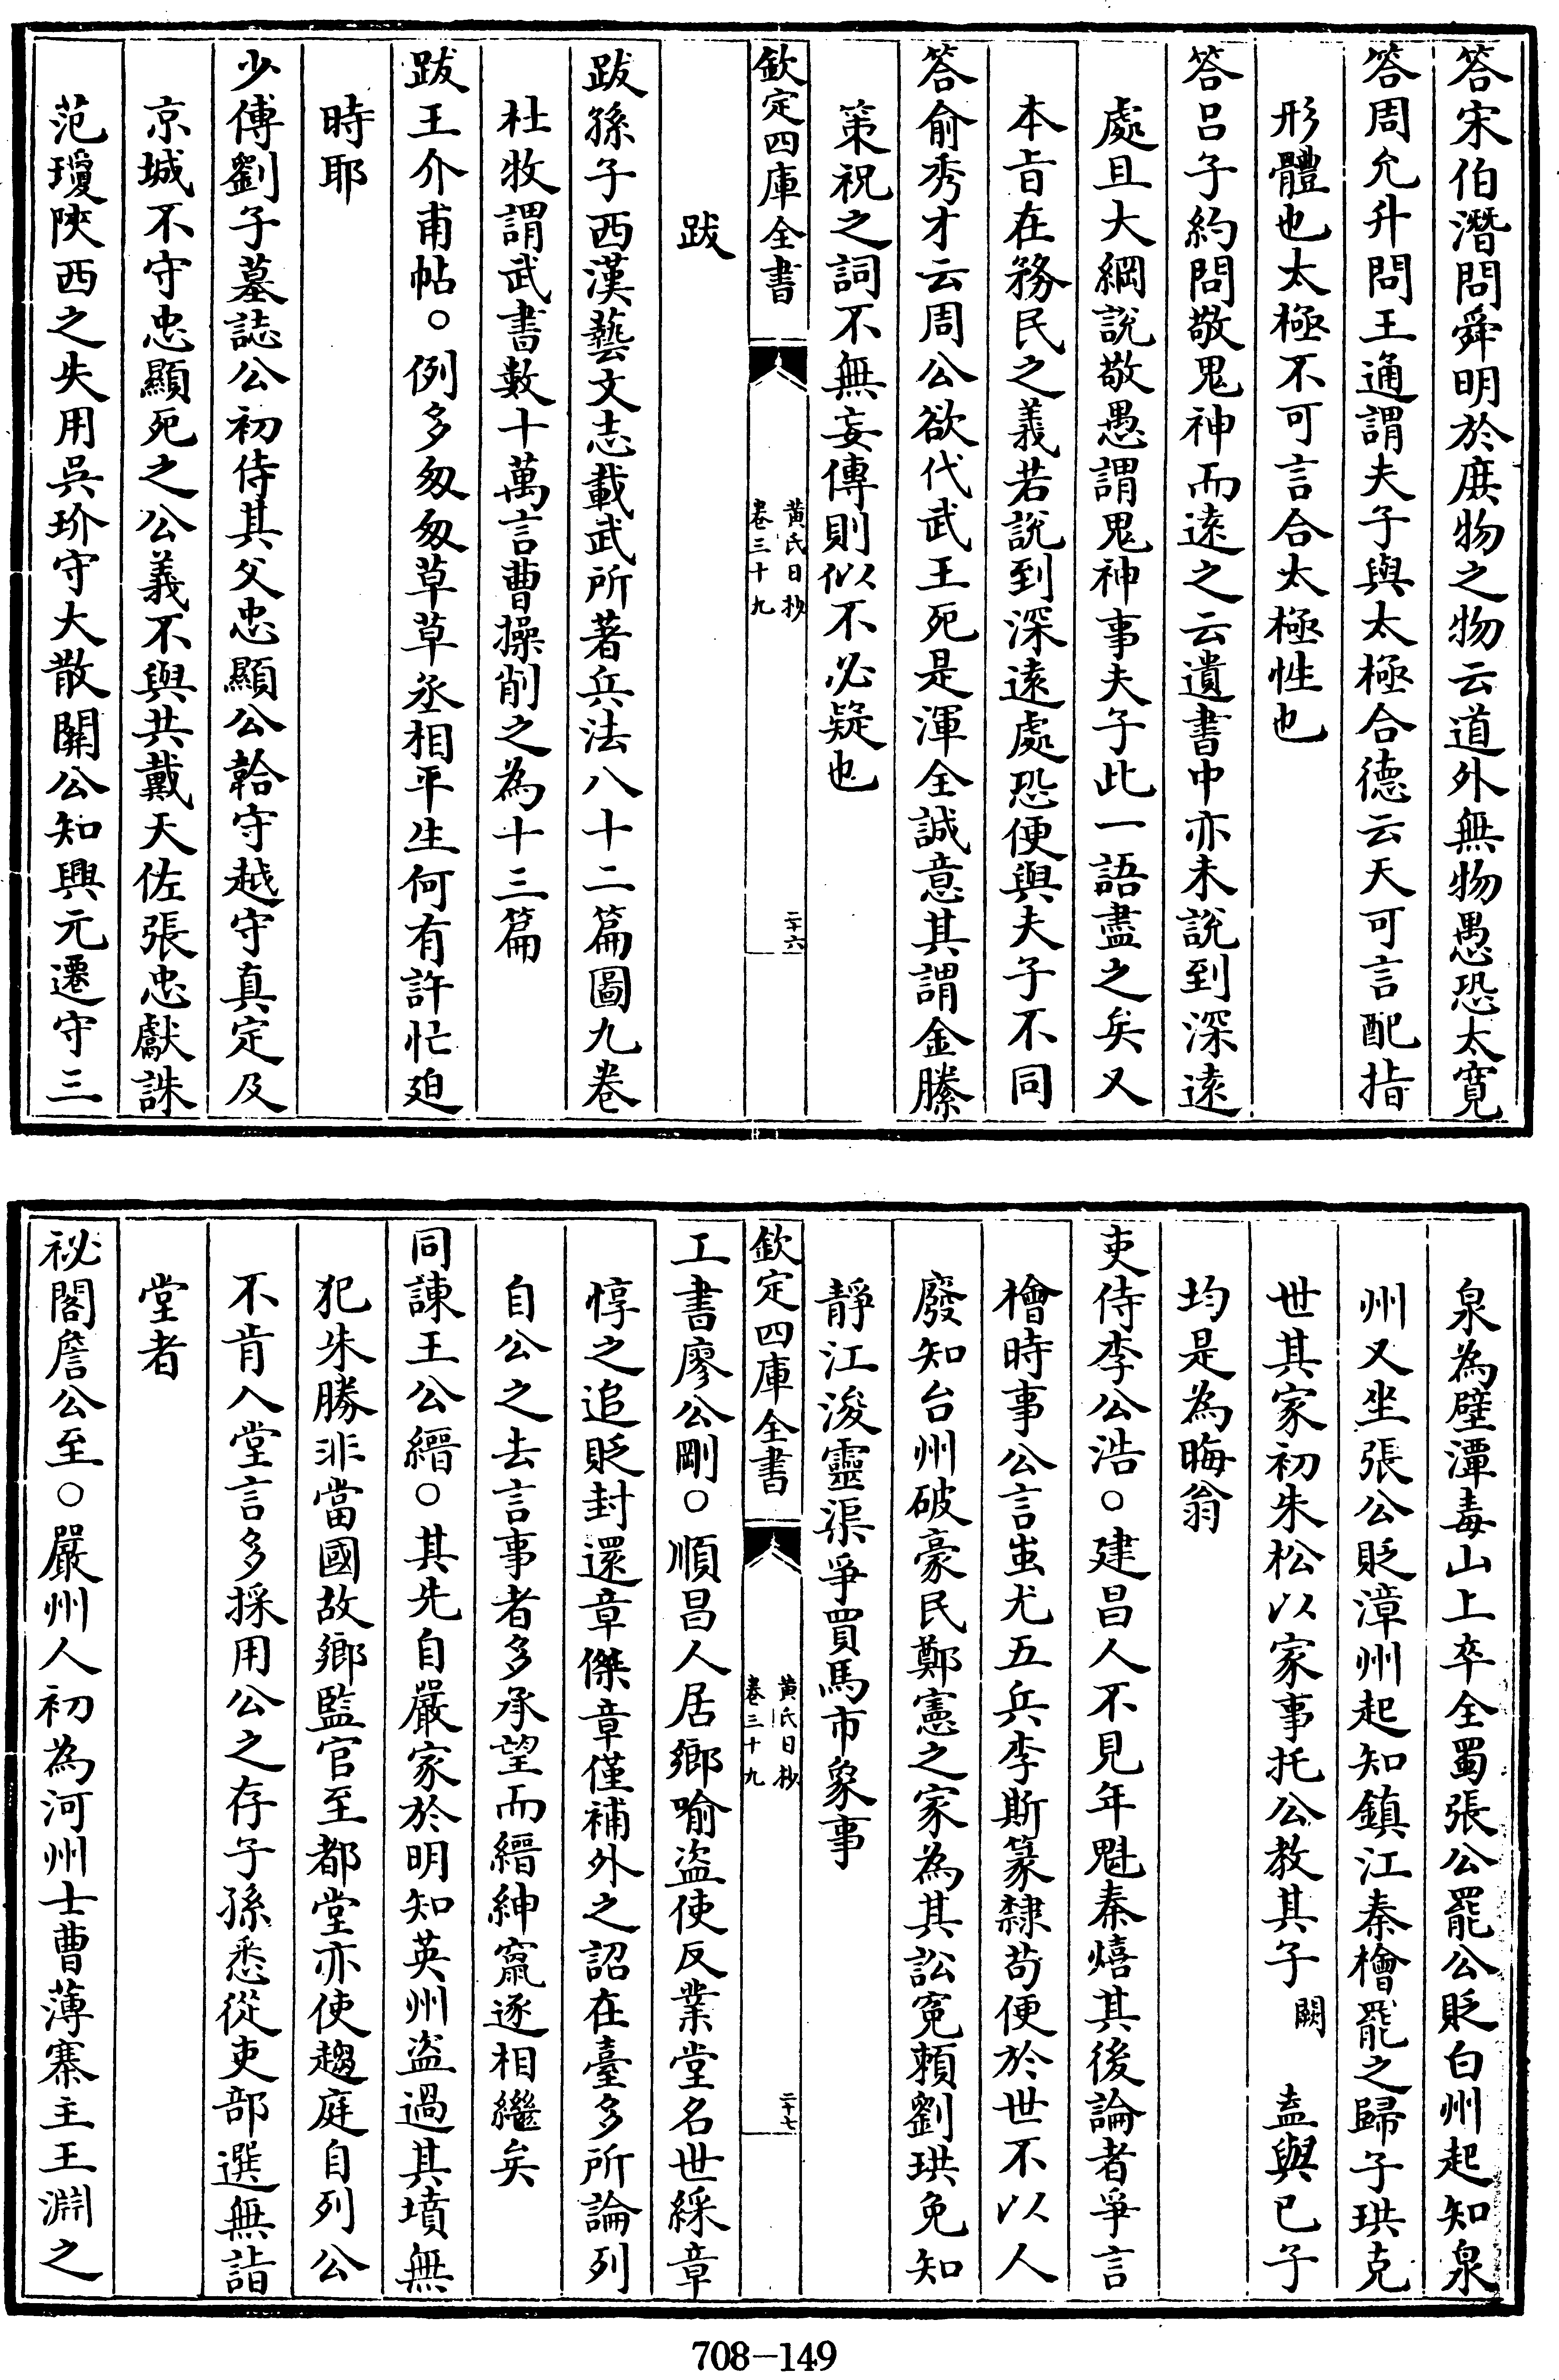 答宋伯潛問舜明於庶物之物云道外無物愚恐太寛
答周允升問王通謂夫子與太極合德云天可言配指
形體也太極不可言合太極性也
答呂子約問敬鬼神而遠之云遺書中亦未說到深遠
處且大綱說敬愚謂鬼神事夫子此一語盡之矣又
本㫖在務民之義若說到深遠處恐便與夫子不同
答俞秀才云周公欲代武王死是渾全誠意其謂金縢
策祝之詞不無妄傳則似不必疑也
欽定四庫全書
黃氏日抄
卷三十九
二十六
跋
跋孫子西漢藝文志載武所著兵法八十二篇圖九卷
杜牧謂武書數十萬言曹操削之為十三篇
跋王介甫帖○例多匆匆草草丞相平生何有許忙廹
時耶
少傅劉子墓誌公初侍其父忠顯公韐守越守真定及
京城不守忠顯死之公義不與共戴天佐張忠獻誅
范瓊陜西之失用吳玠守大散闗公知興元遷守三
泉為壁潭毒山上卒全蜀張公罷公貶白州起知泉
州又坐張公貶漳州起知鎮江秦檜罷之歸子珙克
世其家初朱松以家事托公教其子 闕 盍與已子
均是為晦翁
吏侍李公浩○建昌人不見年魁秦熺其後論者爭言
檜時事公言蚩尤五兵李斯篆隸茍便於世不以人
廢知台州破豪民鄭憲之家為其訟寃賴劉珙免知
靜江浚靈渠爭買馬市象事
欽定四庫全書
黃氏日抄
卷三十九
二十七
工書廖公剛○順昌人居鄉喻盜使反業堂名世綵章
惇之追貶封還章傑章僅補外之詔在臺多所論列
自公之去言事者多承望而縉紳竄逐相繼矣
同諫王公縉○其先自嚴家於明知英州盜過其墳無
犯朱勝非當國故鄉監官至都堂亦使趨庭自列公
不肯入堂言多採用公之存子孫悉從吏部選無詣
堂者
祕閣詹公至○嚴州人初為河州士曹薄寨主王淵之
708-149